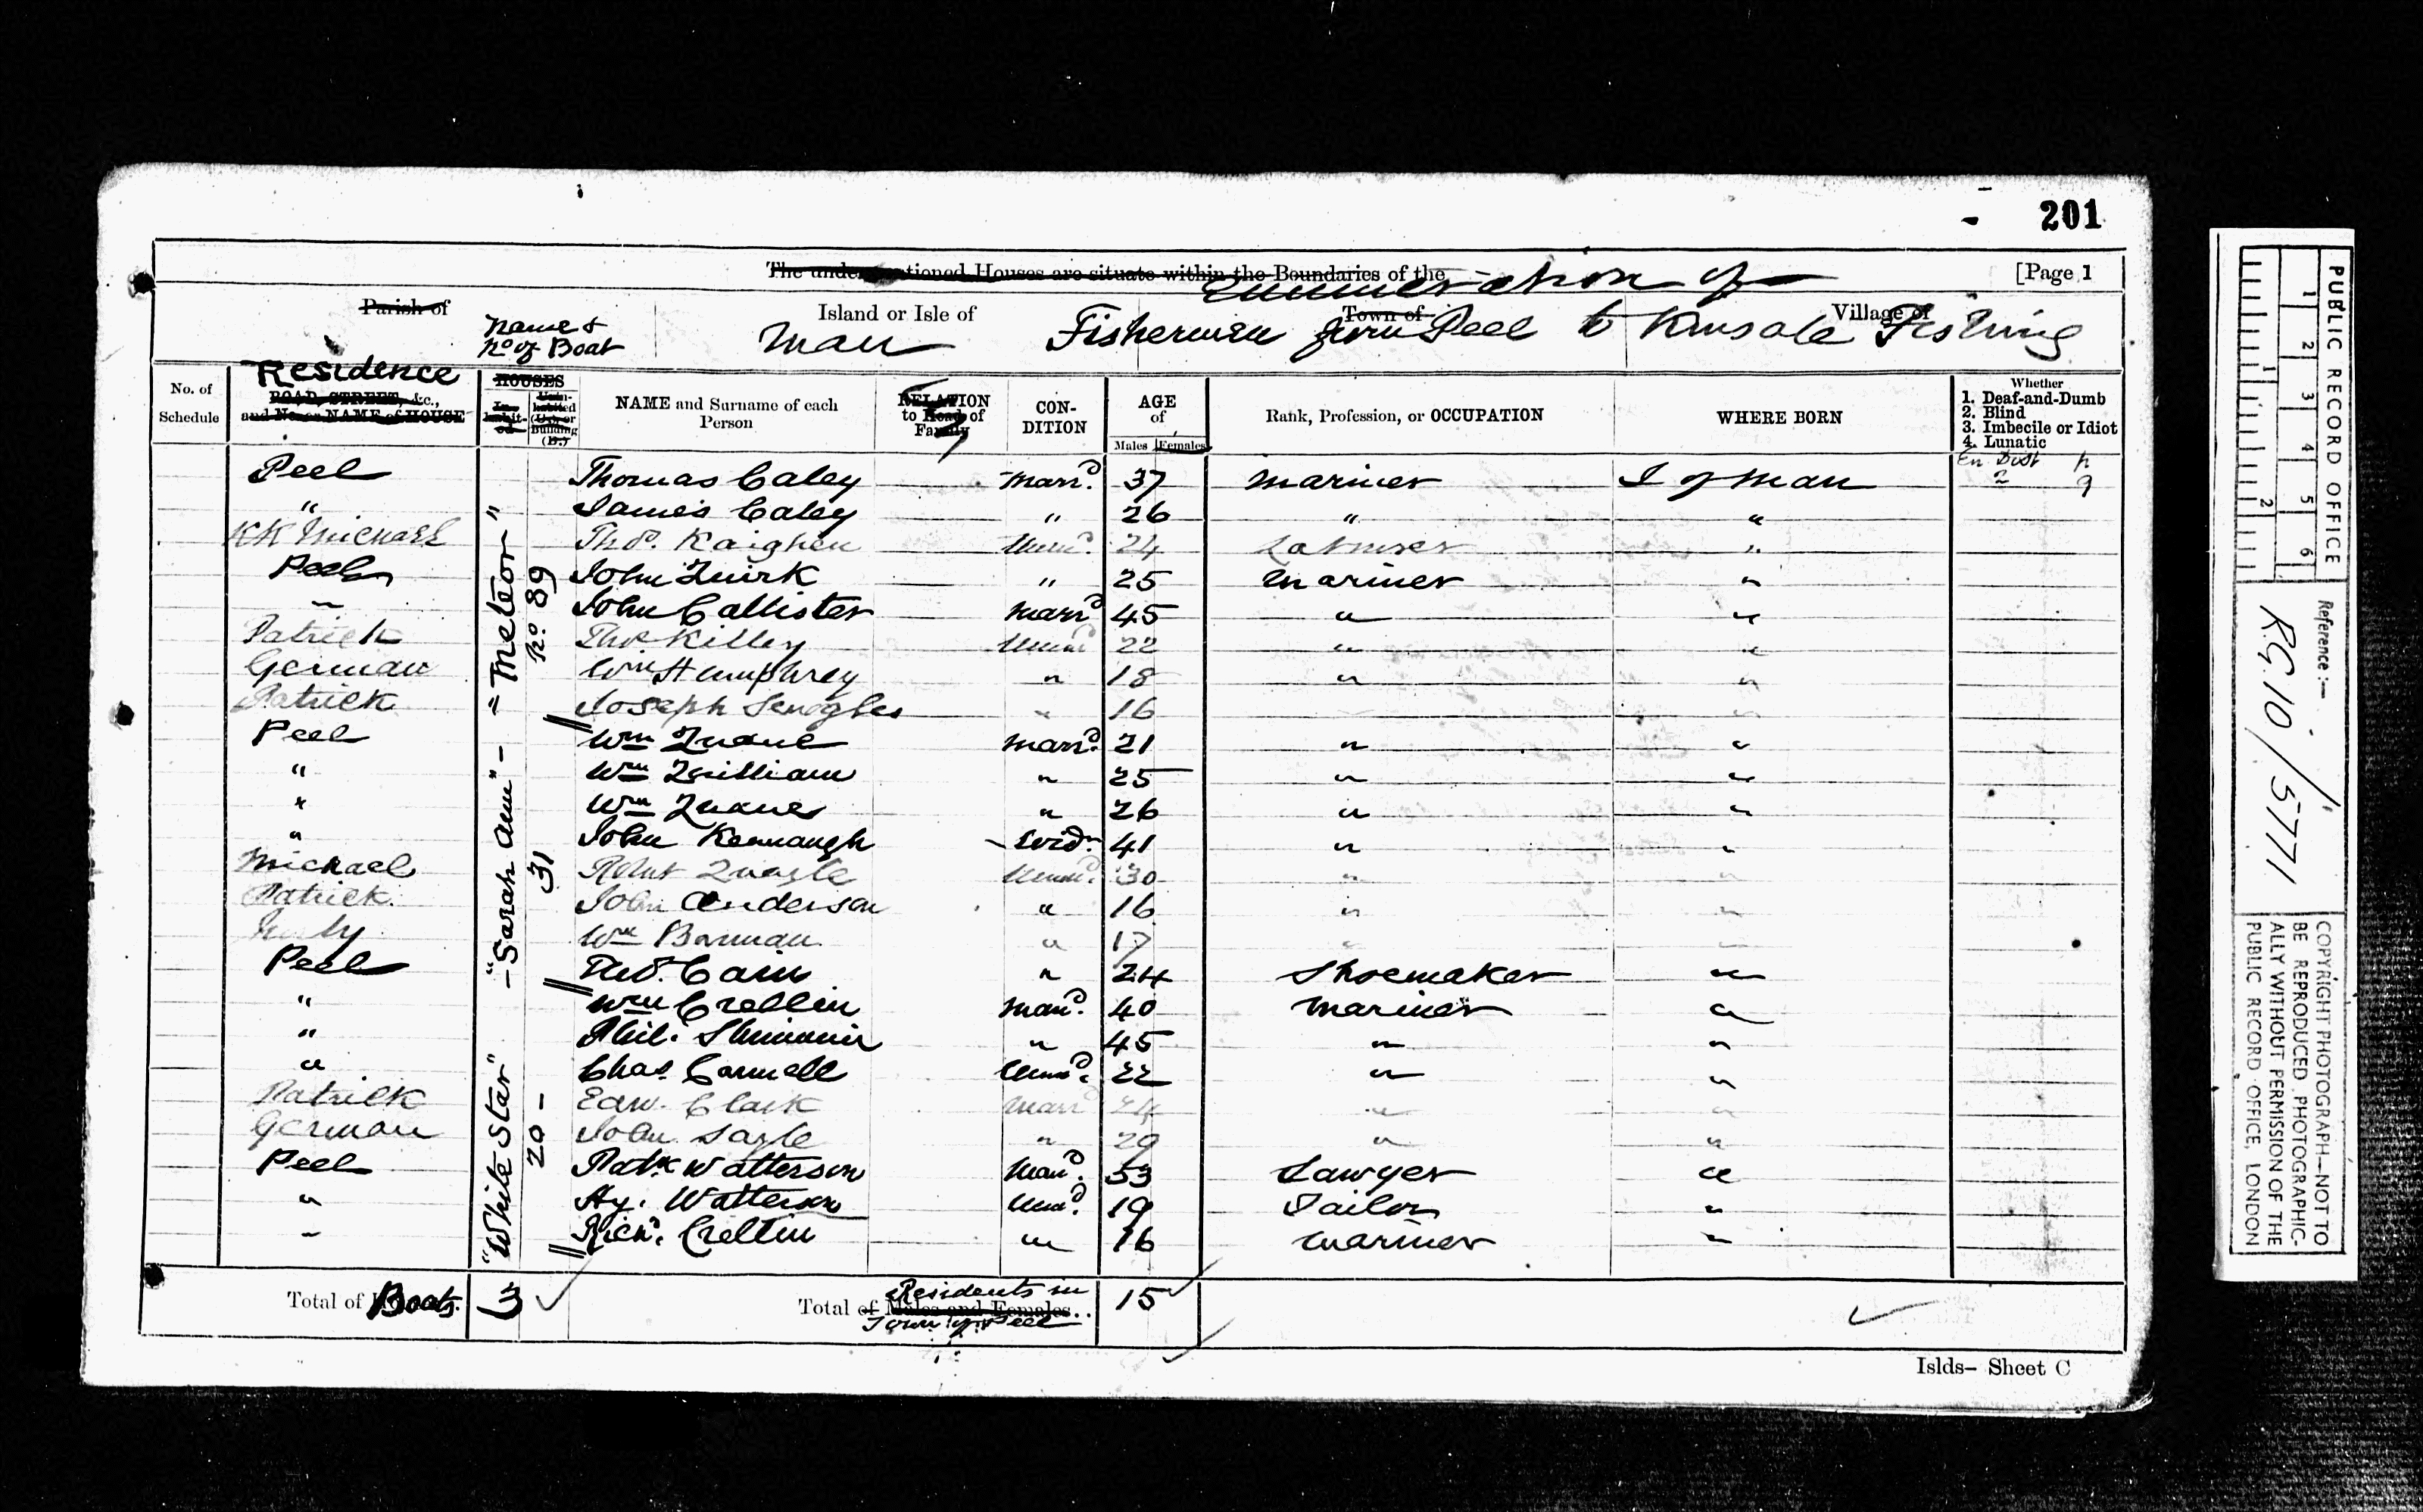 201
The undermentioned Houses are situate within the Boundaries of the
[Page 1
Enumeration of
Parish of
Name & No. of Boat
Island or Isle of
Man
Town of
Village of
Fishermen from Peel to Kinsale Fishing
No. of Schedule
Residence
ROAD, STREET, &c., and No. or NAME of HOUSE
HOUSES
In-habit-ed
Unin-habited (U.), or Building (B.)
NAME and Surname of each Person
RELATION to Head of Family
CON-DITION
AGE of
Males Females
Rank, Profession, or OCCUPATION
WHERE BORN
Whether
1. Deaf-and-Dumb
2. Blind
3. Imbecile or Idiot
4. Lunatic
En Dist
"Meteor" No. 89
Peel Thomas Caley Marrd. 37 Mariner I of Man
" James Caley " 26 " "
KK Michael Thos. Kaighen Unmd. 24 Labourer "
Peel John Quirk " 25 Mariner "
" John Callister Marrd 45 " "
Patrick Thos Killey Unmd 22 " "
German Wm Humphrey " 18 " "
Patrick Joseph " 16 " "
"Sarah Ann" 31
Peel Wm Quane Marrd. 21 " "
" Wm Quilliam " 25 " "
" Wm Quane " 26 " "
" John Kennaugh Widr 41 " "
Michael Robt Quayle Unmd. 30 " "
Patrick. John Anderson " 16 " "
Wm " 17 " "
Peel Thos. Cain " 24 Shoemaker "
"White Star" 20
" Wm Crellin Marrd. 40 Mariner "
" Phil. Shimmin " 45 " "
" Chas. Cannell Unmd. 22 " "
Patrick Edw. Clark Marrd 24 " "
German John Sayle " 29 " "
Peel Patk Watterson Marrd. 53 Sawyer "
" Hy. Watterson Unmd. 19 Tailor "
" Richd. Crellin " 16 Mariner "
Total of Boats. 3
Total of Males and Females..
Residents in Town of Peel
15
Islds- Sheet C
PUBLIC RECORD OFFICE
1 2 3 4 5 6
1 2
Reference:—
R.G. 10 / 5771
COPYRIGHT PHOTOGRAPH—NOT TO
BE REPRODUCED PHOTOGRAPHIC-
ALLY WITHOUT PERMISSION OF THE
PUBLIC RECORD OFFICE, LONDON